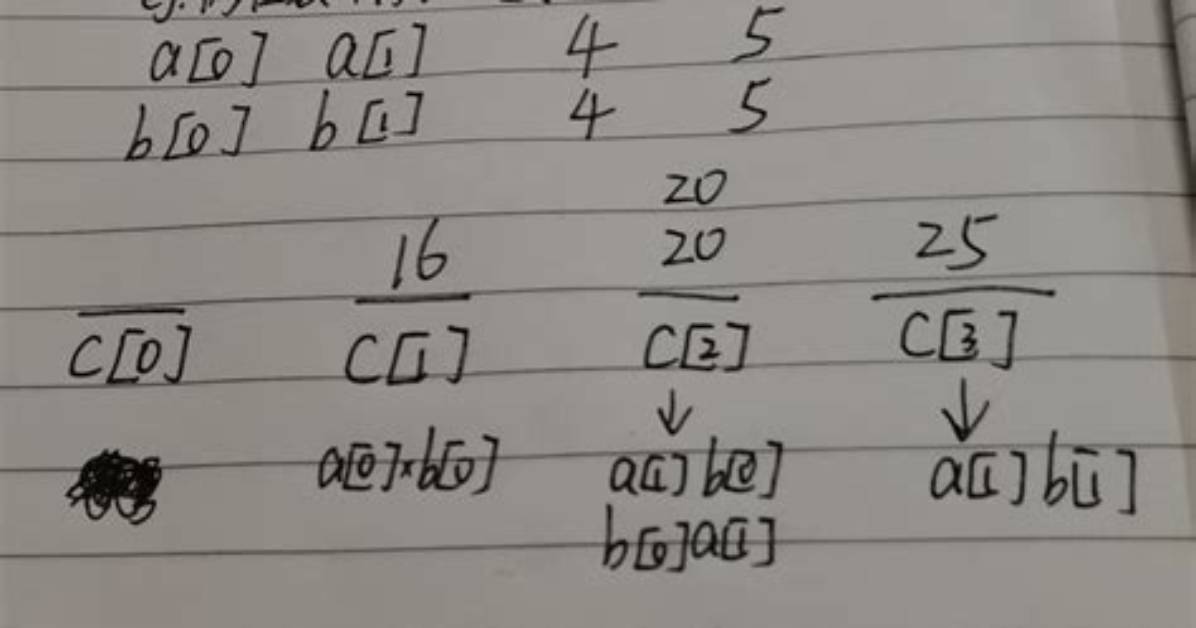 a[0] a[1] 4 5
b[0] b[1] 4 5
20
16 20 25
C[0] C[1] C[2] C[3]
↓ ↓
a[0]×b[0] a[1]b[0] a[1]b[1]
b[0]a[1]